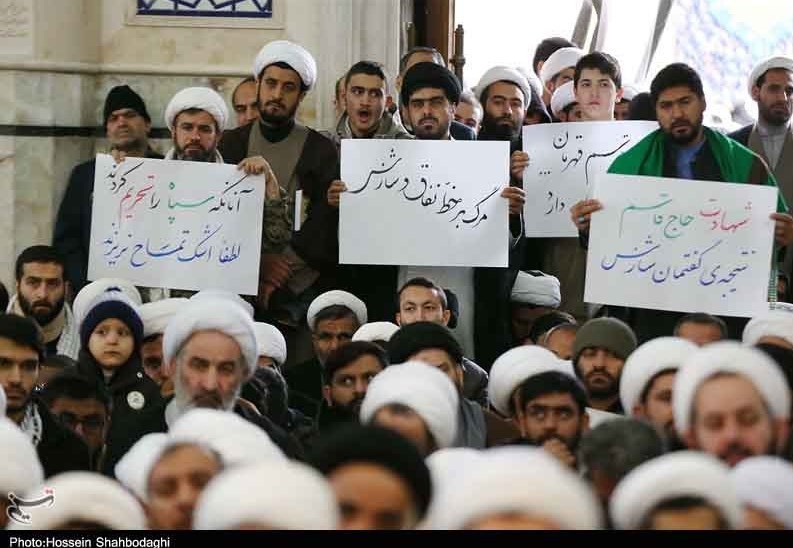 آنانکه سپاه را تحریم کردند
لطفا اشک تمساح نریزند
مرگ بر خط نفاق و سازش
قسم قهرمان
دارد ...
شهادت حاج قاسم
نتیجه‌ی گفتمان سازش
تسنیم
Photo:Hossein Shahbodaghi